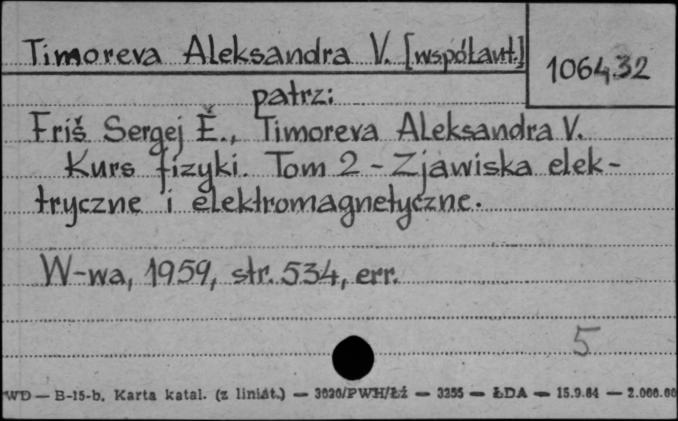 Timoreva Aleksandra V. [współaut.]
106432
patrz:
Friš Sergej Ě., Timoreva Aleksandra V.
Kurs fizyki. Tom 2 - Zjawiska elek-
tryczne i elektromagnetyczne.
W-wa, 1959, str. 534, err.
5
WD — B-15-b. Karta katal. (z liniát.) — 3020/PWH/Łź — 3255 — ŁDA — 15.9.64 — 2.000.00